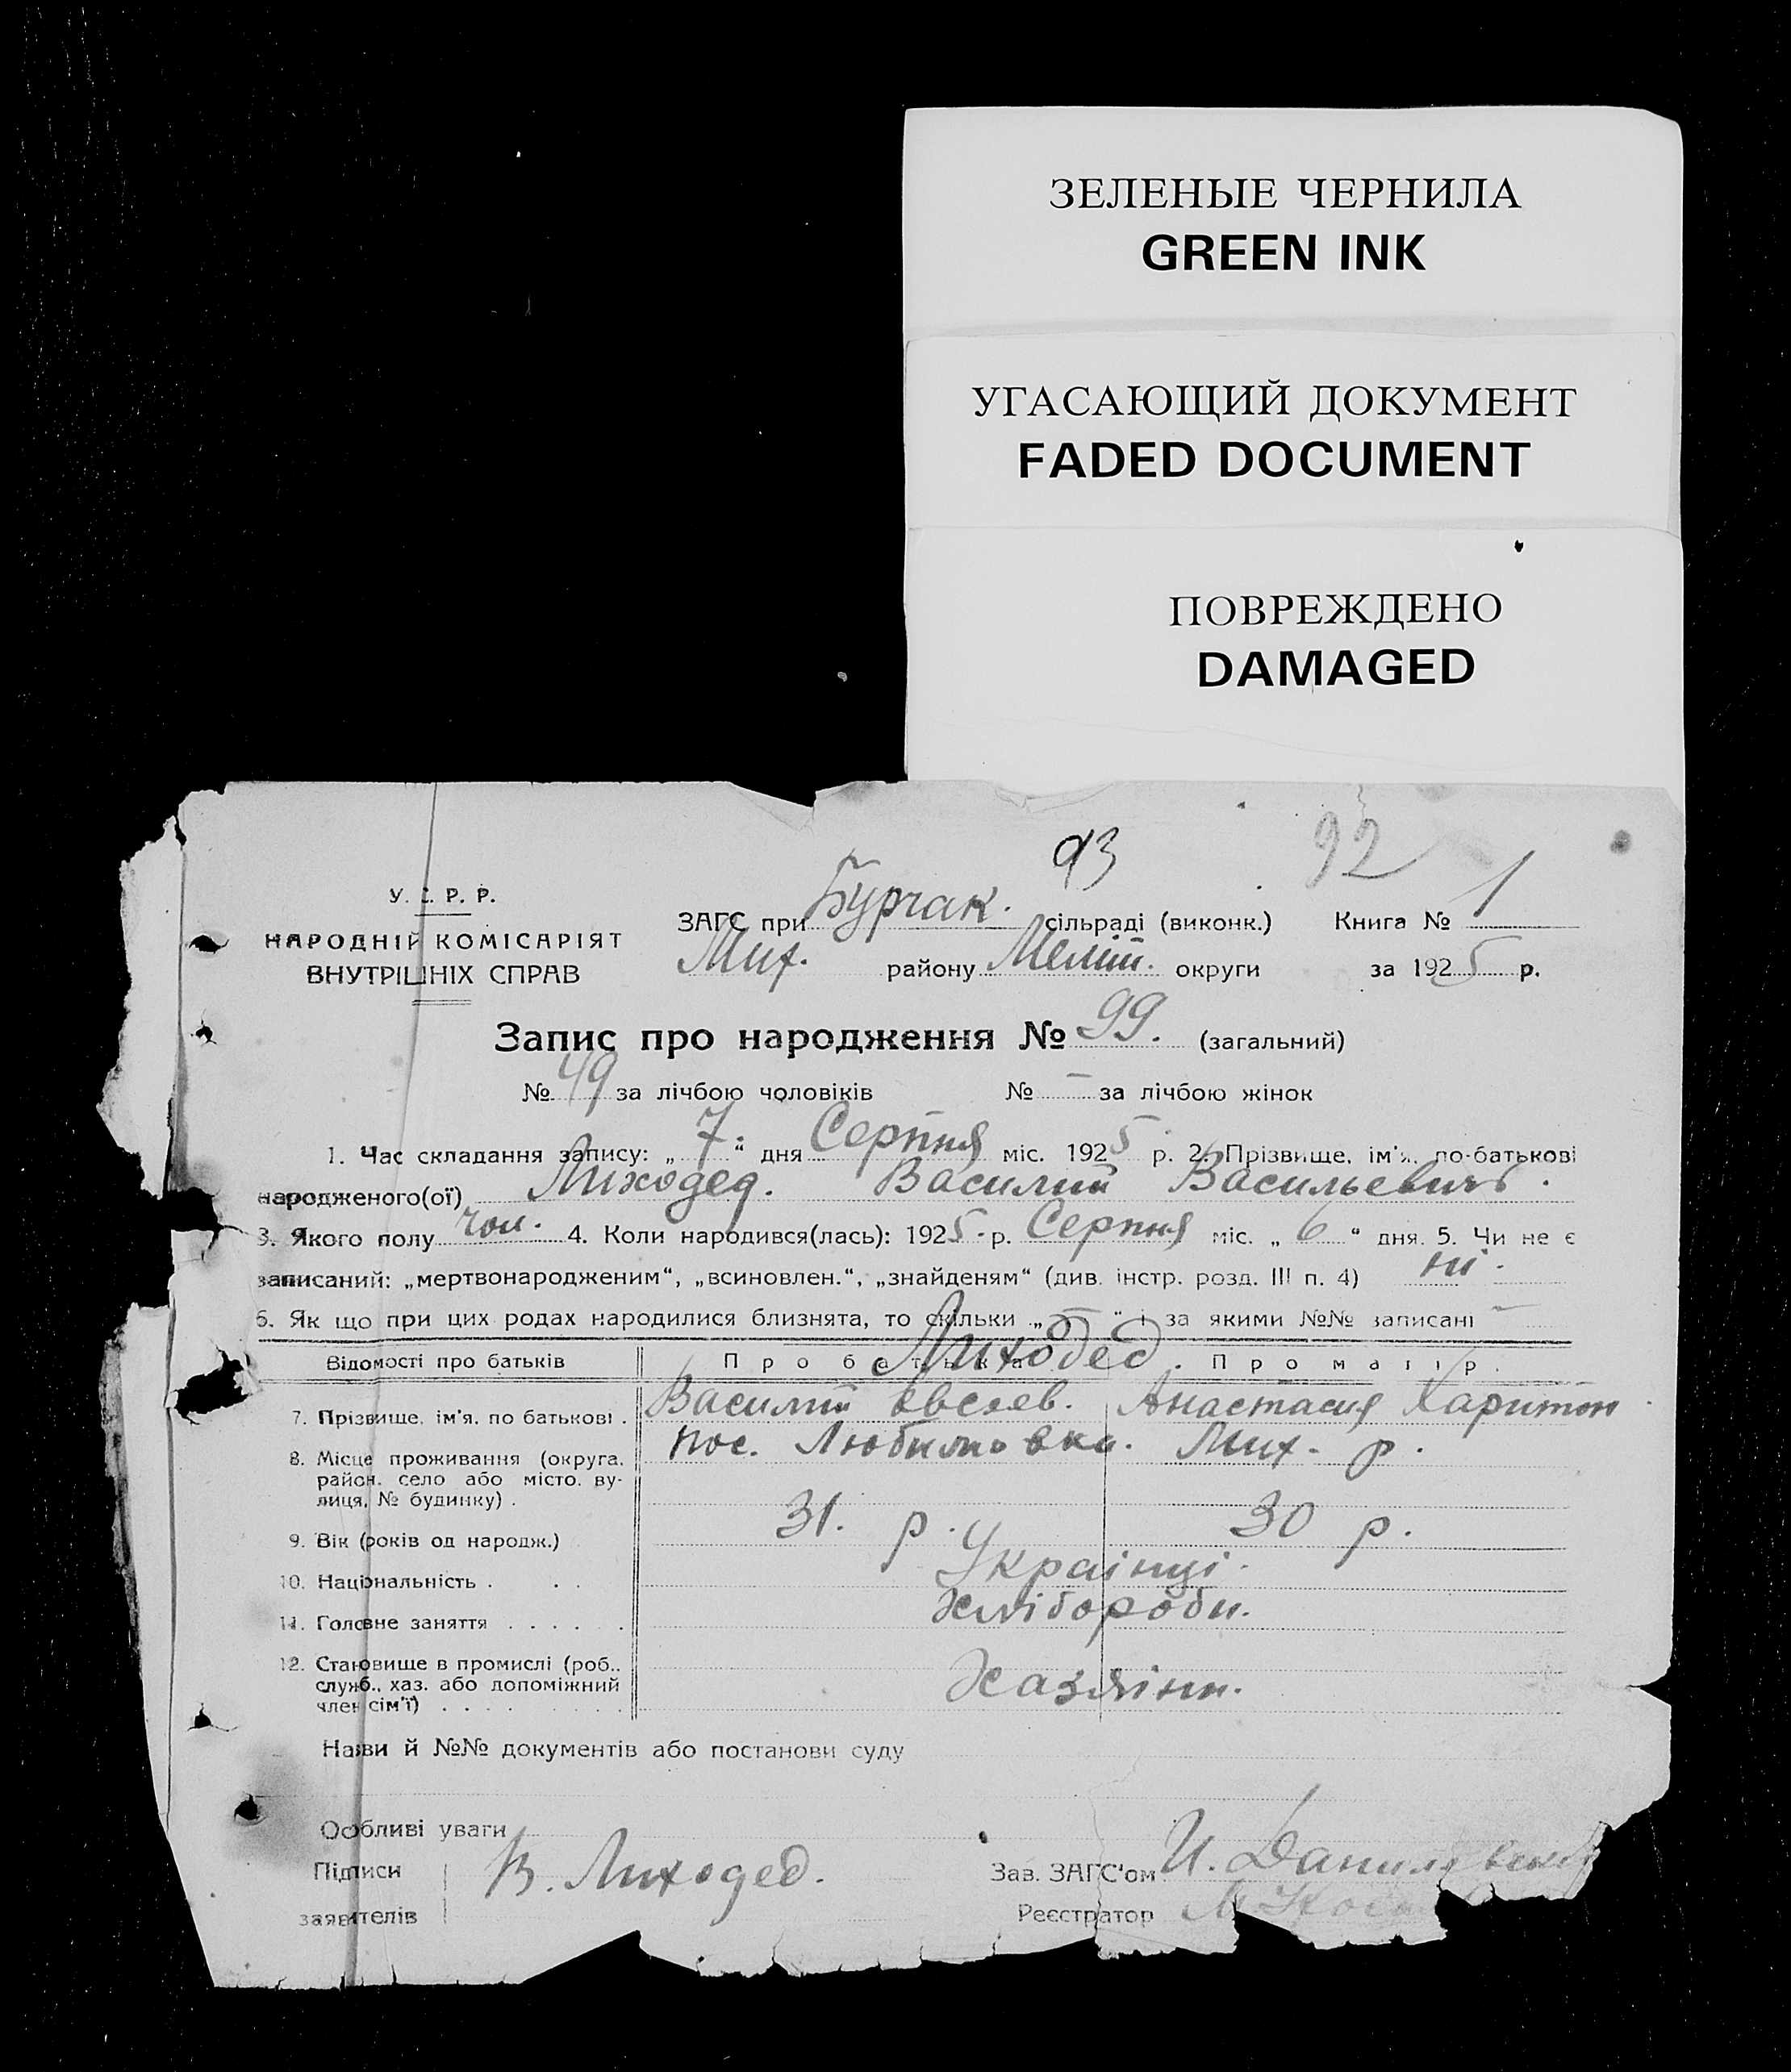 ЗЕЛЕНЫЕ ЧЕРНИЛА
GREEN INK
УГАСАЮЩИЙ ДОКУМЕНТ
FADED DOCUMENT
ПОВРЕЖДЕНО
DAMAGED
93 92
У. С. Р. Р.
НАРОДНІЙ КОМІСАРІЯТ
ВНУТРІШНІХ СПРАВ
ЗАГС при Бурчак. сільраді (виконк.) Книга № 1
Мих. району Меліт. округи за 1925 р.
Запис про народження № 99. (загальний)
№ 49 за лічбою чоловіків № — за лічбою жінок
1. Час складання запису: „ 7 “ дня Серпня міс. 1925 р. 2. Прізвище, ім'я, по-батькові
народженого(ої) Лиходед. Василий Васильевичъ.
3. Якого полу чол. 4. Коли народився(лась): 1925 р. Серпня міс. „ 6 “ дня. 5. Чи не є
записаний: „мертвонародженим“, „всиновлен.“, „знайденям“ (див. інстр. розд. III п. 4) ні.
6. Як що при цих родах народилися близнята, то скільки „ — “ і за якими №№ записані —
Відомості про батьків Про батька Лиходед. Про матір.
7. Прізвище, ім'я, по батькові . Василий Анастасия Харитон
8. Місце проживання (округа, пос. Любимовка. Мих. р.
район, село або місто, ву-
лиця, № будинку) .
9. Вік (років од народж.) 31. р. 30 р.
10. Національність . . . Українці.
11. Головне заняття . . . . . . Хлібороби.
12. Становище в промислі (роб.,
служб., хаз. або допоміжний Хазяіни.
член сім'ї) . . . . . . . .
Назви й №№ документів або постанови суду
Особливі уваги
Підписи В. Лиходед. Зав. ЗАГС'ом И.
заявителів Реєстратор